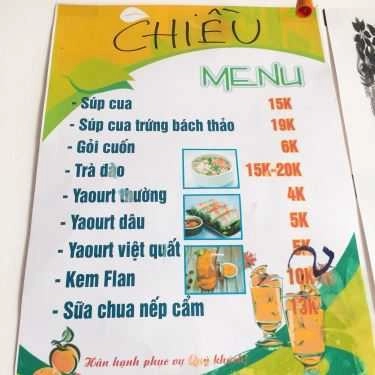 CHIỀU
MENU
- Súp cua 15K
- Súp cua trứng bách thảo 19K
- Gỏi cuốn 6K
- Trà đào 15K-20K
- Yaourt thường 4K
- Yaourt dâu 5K
- Yaourt việt quất 5K
- Kem Flan
- Sữa chua nếp cẩm 13K
Hân hạnh phục vụ Quý khách